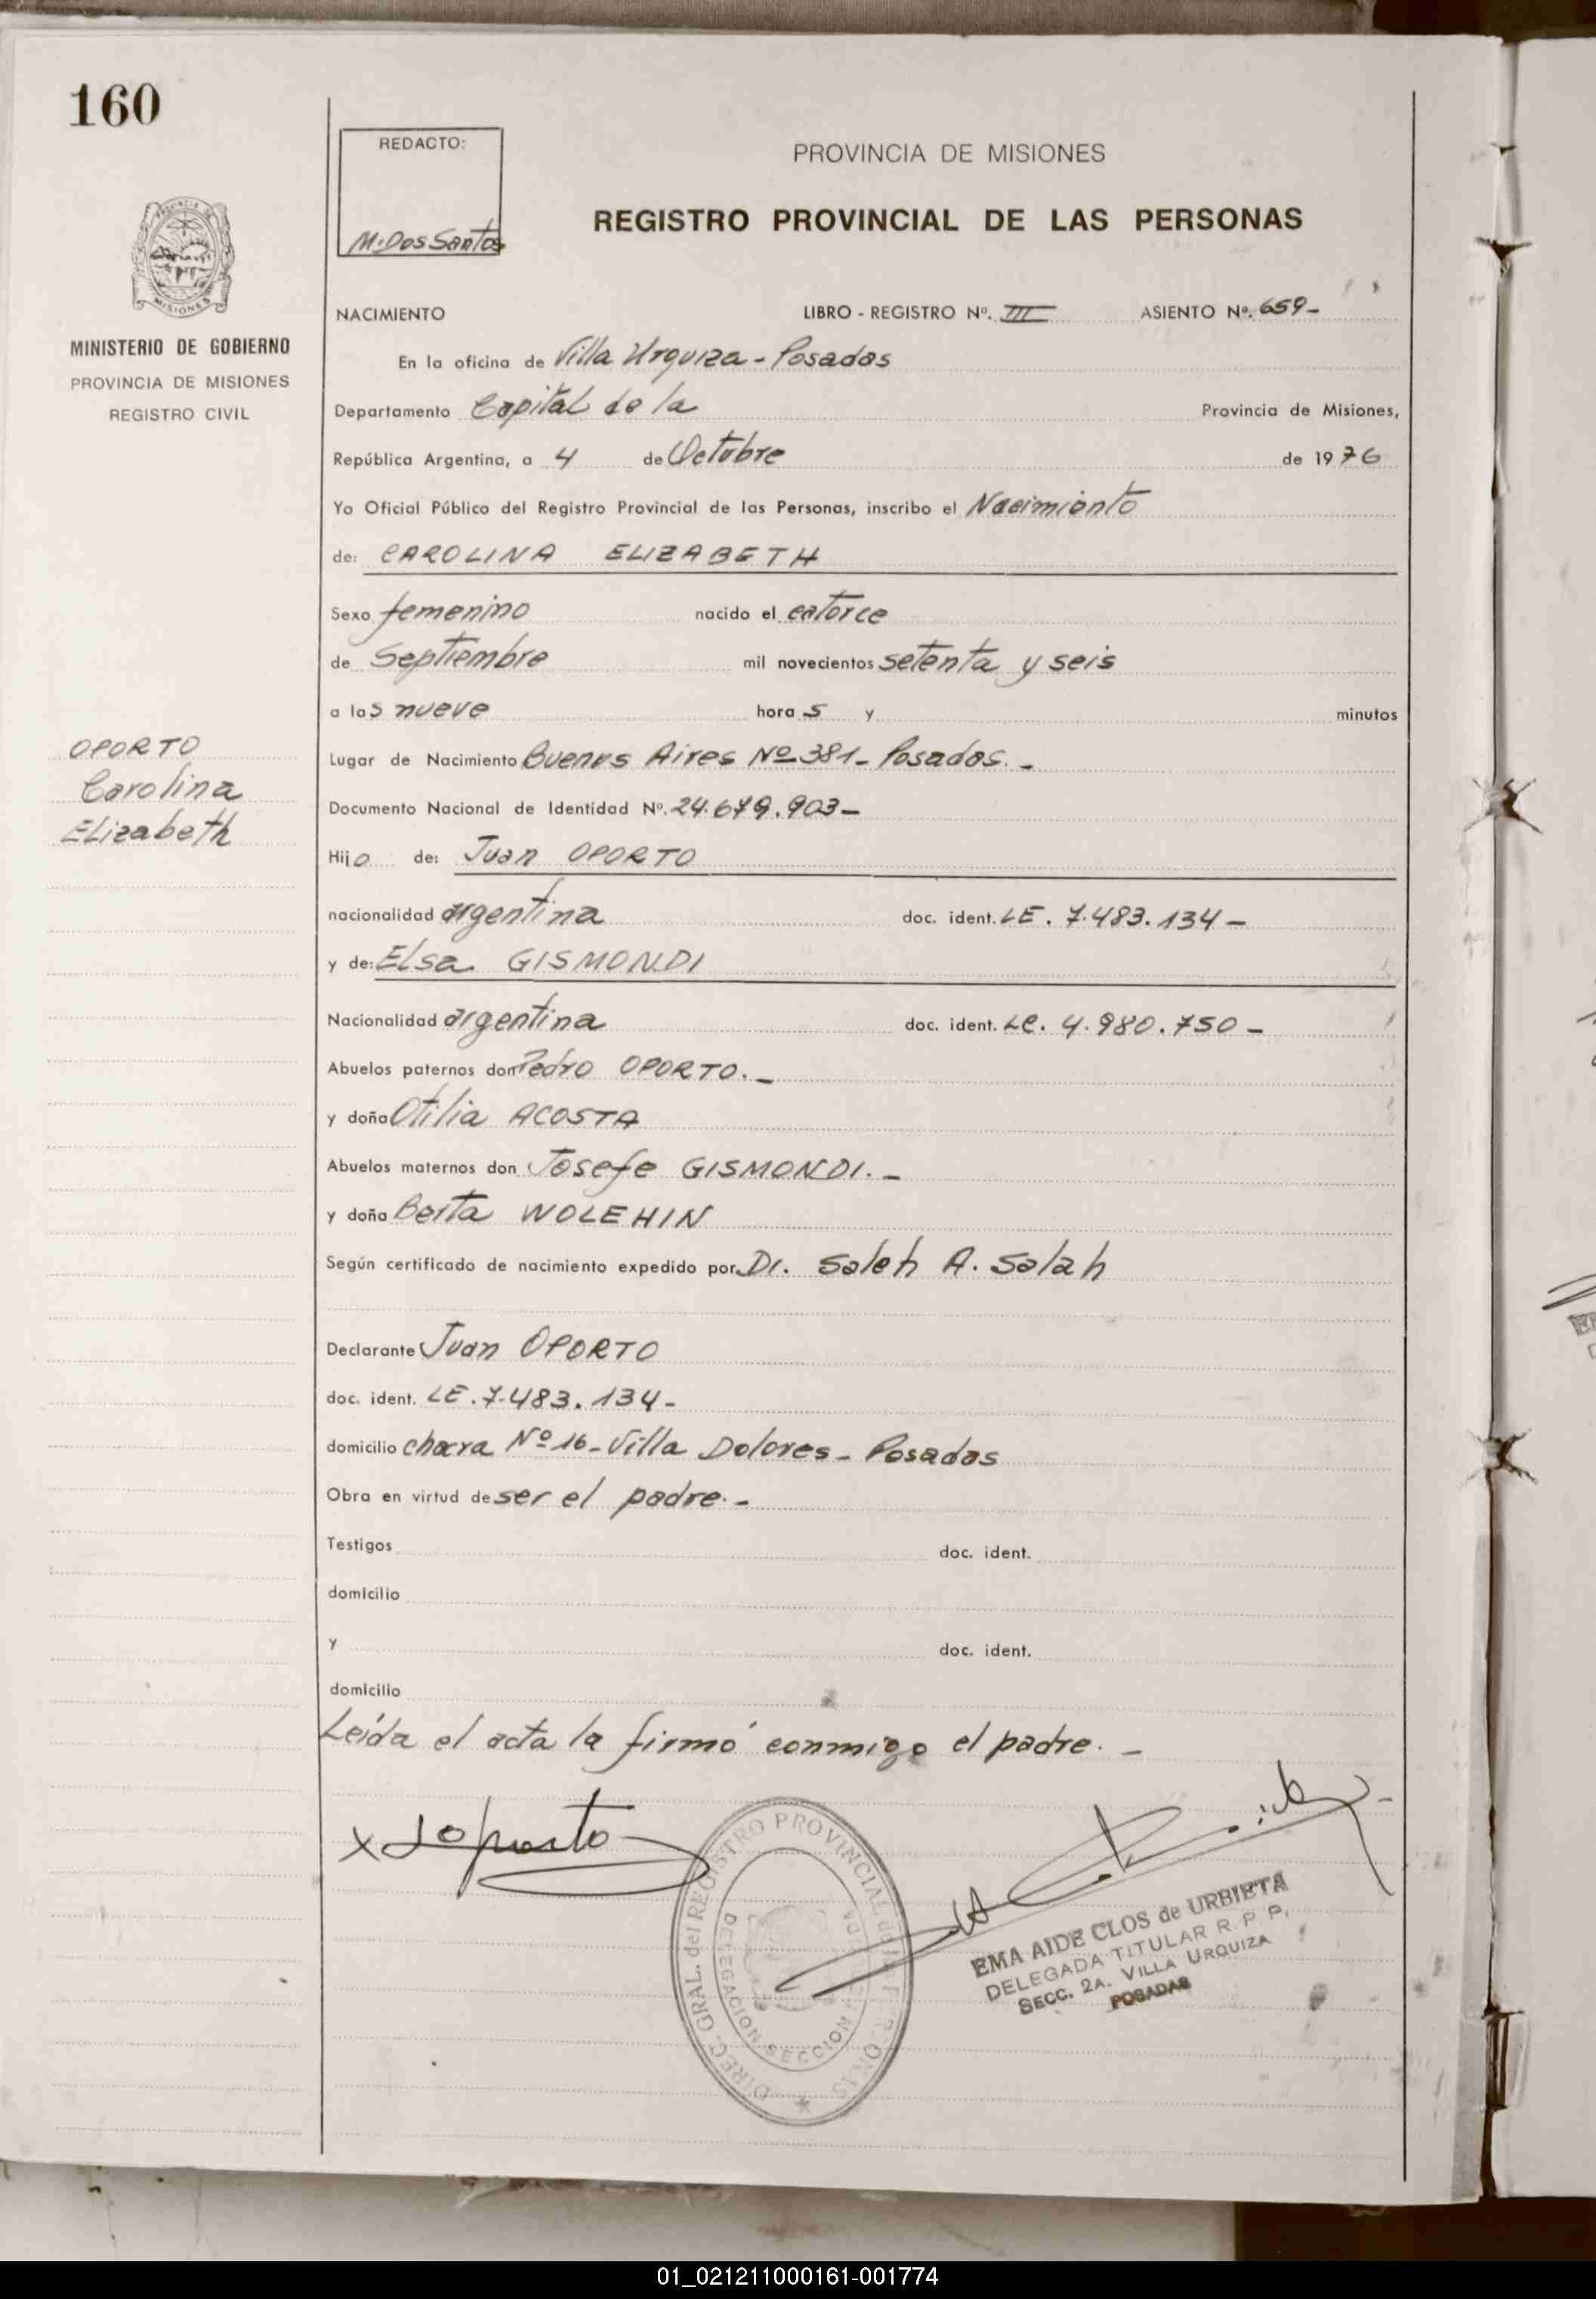 160
REDACTO:
M. Dos Santos
PROVINCIA DE MISIONES
REGISTRO PROVINCIAL DE LAS PERSONAS
PROVINCIA DE
MISIONES
MINISTERIO DE GOBIERNO
PROVINCIA DE MISIONES
REGISTRO CIVIL
NACIMIENTO LIBRO - REGISTRO Nº. III ASIENTO Nº. 659-
En la oficina de Villa Urquiza - Posadas
Departamento Capital de la Provincia de Misiones,
República Argentina, a 4 de Octubre de 1976
Yo Oficial Público del Registro Provincial de las Personas, inscribo el Nacimiento
de: CAROLINA ELIZABETH
Sexo femenino nacido el catorce
de Septiembre mil novecientos setenta y seis
a las nueve horas y minutos
OPORTO
Carolina
Elizabeth
Lugar de Nacimiento Buenos Aires Nº 381- Posadas.-
Documento Nacional de Identidad Nº. 24.679.903-
Hija de: Juan OPORTO
nacionalidad argentina doc. ident. LE. 7.483.134-
y de: Elsa GISMONDI
Nacionalidad argentina doc. ident. LC. 4.980.750-
Abuelos paternos don Pedro OPORTO.-
y doña Otilia ACOSTA
Abuelos maternos don Josefe GISMONDI.-
y doña Berta WOLEHIN
Según certificado de nacimiento expedido por Dr. Saleh A. Salah
Declarante Juan OPORTO
doc. ident. LE. 7.483.134-
domicilio chacra Nº 16- Villa Dolores- Posadas
Obra en virtud de ser el padre.-
Testigos doc. ident.
domicilio
y doc. ident.
domicilio
Leída el acta la firmó conmigo el padre.-
x Joporto
DIREC. GRAL. del REGISTRO PROVINCIAL de las PERSONAS
DELEGACION SECCION
EMA AIDE CLOS de URBIETA
DELEGADA TITULAR R. P. P.
SECC. 2A. VILLA URQUIZA
POSADAS
01_021211000161-001774